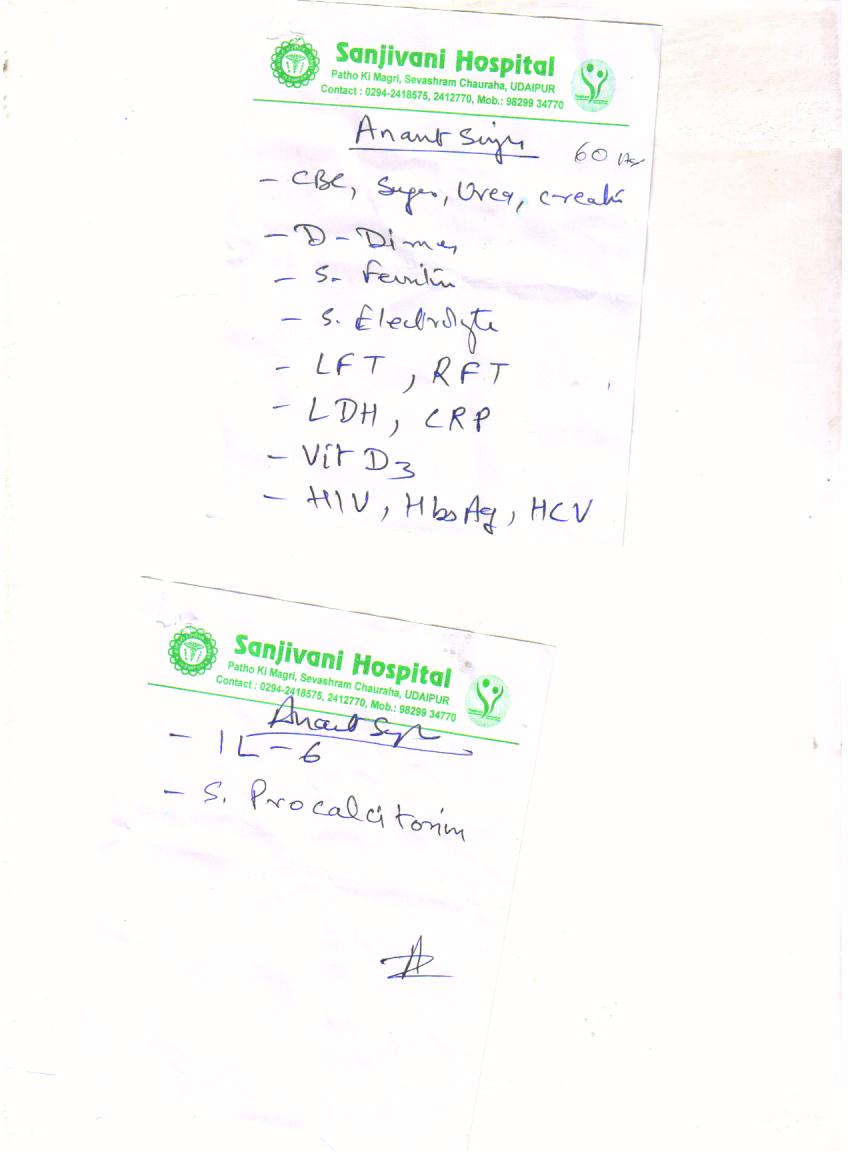 Sanjivani Hospital
Patho Ki Magri, Sevashram Chauraha, UDAIPUR
Contact : 0294-2418575, 2412770, Mob.: 98299 34770
Anant Singh 60
- CBC, Sugar, Urea, Creatin
- D-Dimer
- S. Ferritin
- S. Electrolyte
- LFT, RFT
- LDH, CRP
- Vit D3
- HIV, HbsAg, HCV
Sanjivani Hospital
Patho Ki Magri, Sevashram Chauraha, UDAIPUR
Contact : 0294-2418575, 2412770, Mob.: 98299 34770
Anant Singh
- IL-6
- S. Procalcitonin